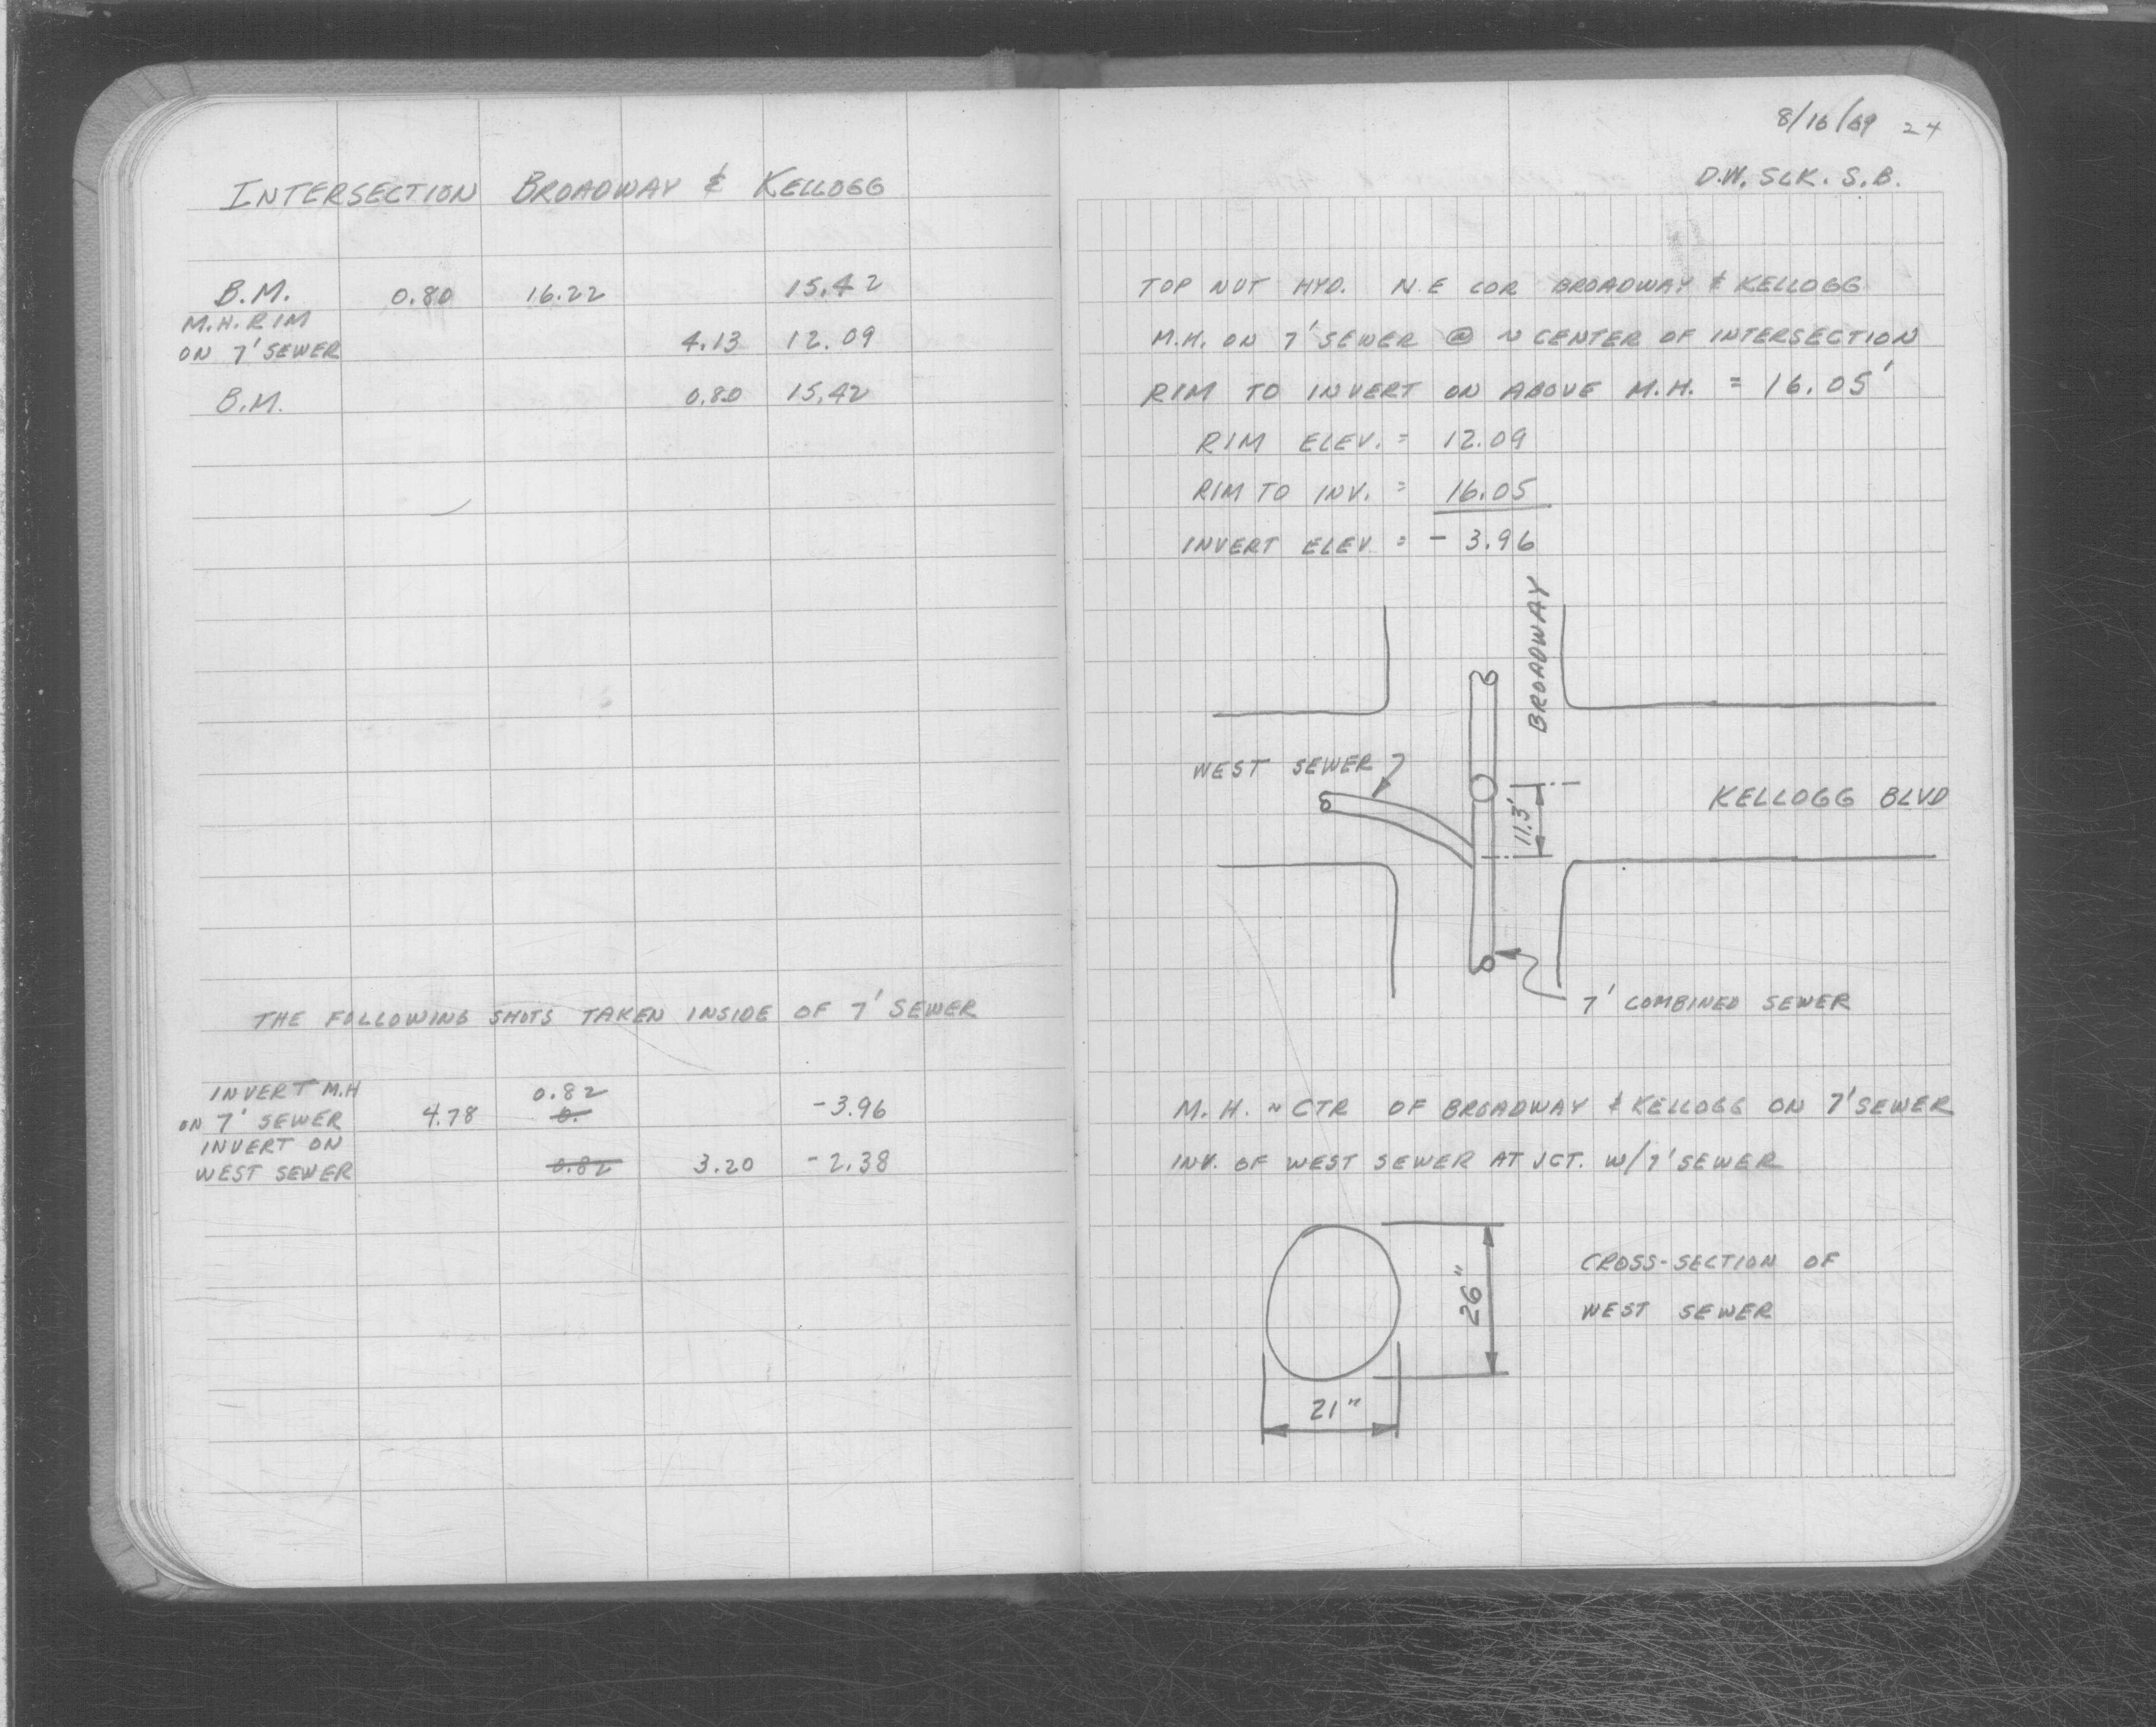 INTERSECTION BROADWAY & KELLOGG
B.M. 0.80 16.22 15.42
M.H. RIM
ON 7' SEWER 4.13 12.09
B.M. 0.80 15.42
THE FOLLOWING SHOTS TAKEN INSIDE OF 7' SEWER
INVERT M.H 0.82
ON 7' SEWER 4.78 0. -3.96
INVERT ON
WEST SEWER 0.82 3.20 -2.38
8/16/69 24
D.W. SLK. S.B.
TOP NUT HYD. N.E COR BROADWAY & KELLOGG
M.H. ON 7' SEWER @ ~ CENTER OF INTERSECTION
RIM TO INVERT ON ABOVE M.H. = 16.05'
RIM ELEV. = 12.09
RIM TO INV. = 16.05
INVERT ELEV = - 3.96
BROADWAY
WEST SEWER
KELLOGG BLVD
11.3'
7' COMBINED SEWER
M.H. ~ CTR OF BROADWAY & KELLOGG ON 7' SEWER
INV. OF WEST SEWER AT JCT. W/7' SEWER
CROSS-SECTION OF
26"
WEST SEWER
21"